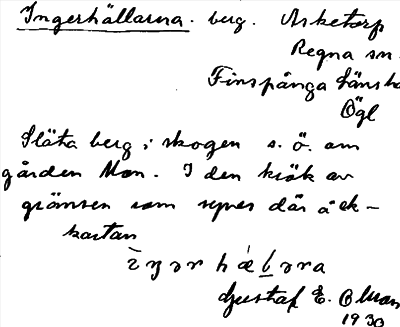 Ingerhällarna. berg. Asketorp
Regna sn.
Finspånga länsh
Ögl
Släta berg i skogen s. ö. om
gården Mon. I den krök av
gränsen som synes där å ek-
kartan
Gustaf E. Oman
1930